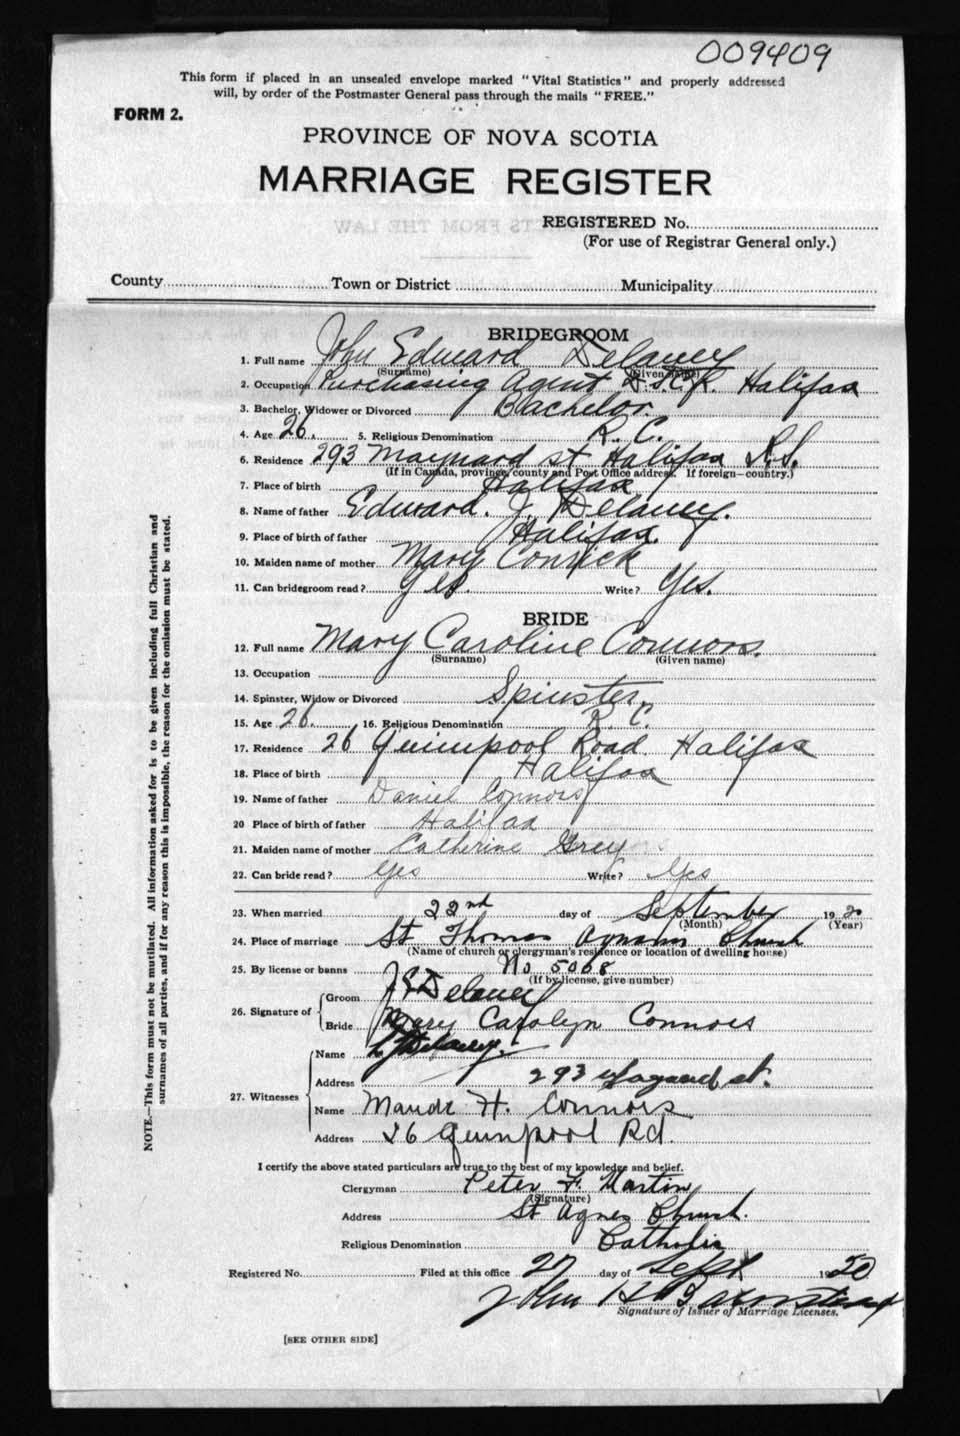 009409
This form if placed in an unsealed envelope marked "Vital Statistics" and properly addressed
will, by order of the Postmaster General pass through the mails "FREE."
FORM 2.
PROVINCE OF NOVA SCOTIA
MARRIAGE REGISTER
REGISTERED No.
(For use of Registrar General only.)
County Town or District Municipality
BRIDEGROOM
1. Full name John Edward Delaney
(Surname) (Given name)
2. Occupation Purchasing Agent Halifax
3. Bachelor, Widower or Divorced Bachelor.
4. Age 26. 5. Religious Denomination R. C.
6. Residence 293 Maynard st Halifax N.S.
(If in Canada, province, county and Post Office address. If foreign—country.)
7. Place of birth Halifax
8. Name of father Edward. J. Delaney.
9. Place of birth of father Halifax.
10. Maiden name of mother Mary Conrick
11. Can bridegroom read? Yes. Write? Yes.
BRIDE
12. Full name Mary Caroline Connors.
(Surname) (Given name)
13. Occupation
14. Spinster, Widow or Divorced Spinster.
15. Age 26. 16. Religious Denomination R. C.
17. Residence 26 Quinpool Road Halifax
18. Place of birth Halifax
19. Name of father Daniel Connors
20 Place of birth of father Halifax
21. Maiden name of mother Catherine Grey
22. Can bride read? Yes Write? Yes
23. When married 22nd day of September 1920
(Month) (Year)
24. Place of marriage St Thomas Church
(Name of church or clergyman's residence or location of dwelling house)
25. By license or banns No. 5068
(If by license, give number)
26. Signature of Groom J E Delaney
Bride Mary Carolyn Connors
27. Witnesses Name Delaney.
Address 293 st.
Name Maude H. Connors
Address 26 Quinpool Rd.
I certify the above stated particulars are true to the best of my knowledge and belief.
Clergyman Peter F. Martin
(Signature)
Address St Agnes Church.
Religious Denomination Catholic
Registered No. Filed at this office 27 day of Sept 1920
John H Barnstead
Signature of Issuer of Marriage Licenses.
[SEE OTHER SIDE]
NOTE.—This form must not be mutilated. All information asked for is to be given including full Christian and
surnames of all parties, and if for any reason this is impossible, the reason for the omission must be stated.